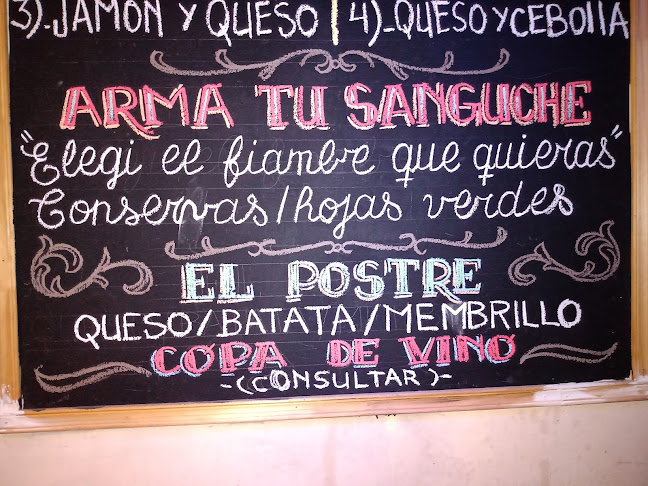 3)-JAMÓN Y QUESO 4)-QUESO Y CEBOLLA
ARMA TU SANGUCHE
"Elegi el fiambre que quieras"
Conservas/hojas verdes
EL POSTRE
QUESO/BATATA/MEMBRILLO
COPA DE VINO
-(CONSULTAR)-